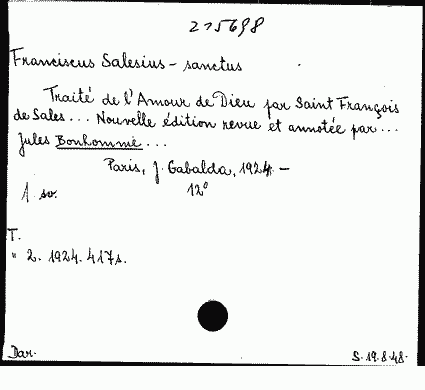 215698
Franciscus Salesius - sanctus
Traité de l'Amour de Dieu par Saint François
de Sales... Nouvelle édition revue et annotée par...
Jules Bonhomme...
Paris, J. Gabalda, 1924 -
1 sv. 12°
T.
" 2. 1924. 417s.
Dar. S. 19.8.48.